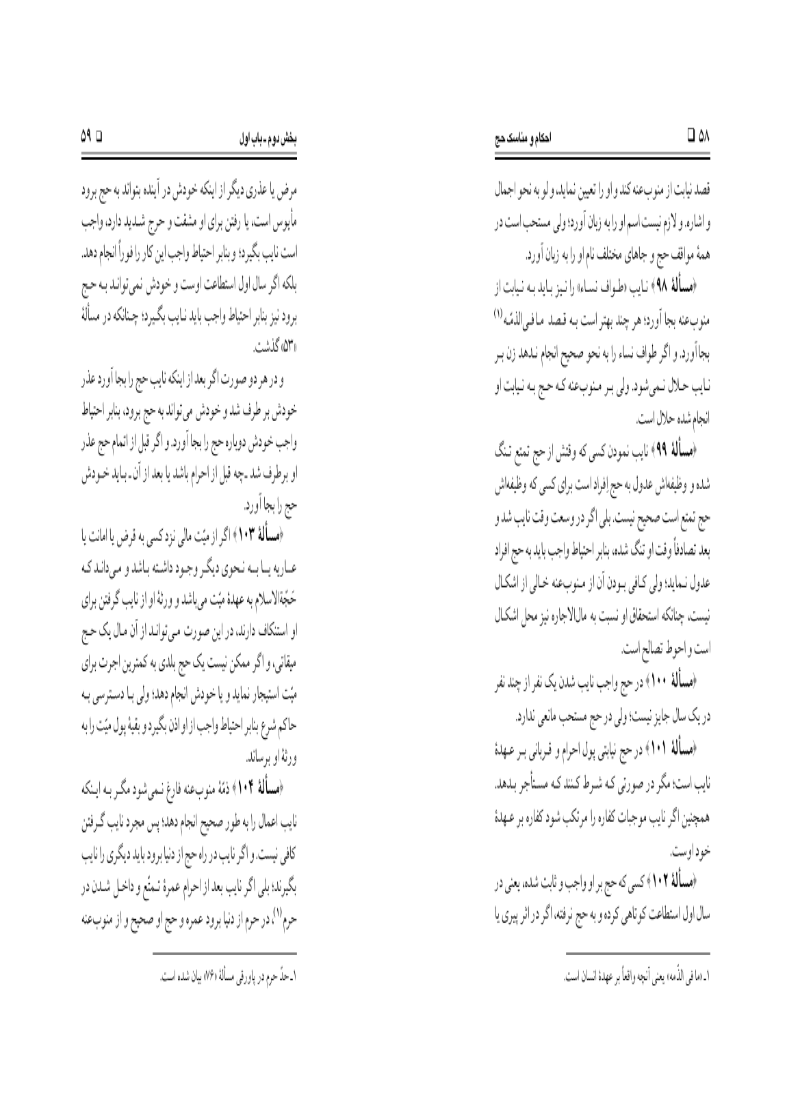 ۵۸ ❑ احکام و مناسک حج
قصد نیابت از منوب‌عنه کند و او را تعیین نماید، و لو به نحو اجمال
و اشاره. و لازم نیست اسم او را به زبان آورد؛ ولی مستحب است در
همهٔ مواقف حج و جاهای مختلف نام او را به زبان آورد.
﴿مسألهٔ ۹۸﴾ نایب «طواف نساء» را نیز باید به نیابت از
منوب‌عنه بجا آورد؛ هر چند بهتر است به قصد مافی‌الذمّه(۱)
بجا آورد. و اگر طواف نساء را به نحو صحیح انجام ندهد زن بر
نایب حلال نمی‌شود. ولی بر منوب‌عنه که حج به نیابت او
انجام شده حلال است.
﴿مسألهٔ ۹۹﴾ نایب نمودن کسی که وقتش از حج تمتع تنگ
شده و وظیفه‌اش عدول به حج اِفراد است برای کسی که وظیفه‌اش
حج تمتع است صحیح نیست. بلی اگر در وسعت وقت نایب شد و
بعد تصادفاً وقت او تنگ شده، بنابر احتیاط واجب باید به حج افراد
عدول نماید؛ ولی کافی بودن آن از منوب‌عنه خالی از اشکال
نیست، چنانکه استحقاق او نسبت به مال‌الاجاره نیز محل اشکال
است و احوط تصالح است.
﴿مسألهٔ ۱۰۰﴾ در حج واجب نایب شدن یک نفر از چند نفر
در یک سال جایز نیست؛ ولی در حج مستحب مانعی ندارد.
﴿مسألهٔ ۱۰۱﴾ در حج نیابتی پول احرام و قربانی بر عهدهٔ
نایب است؛ مگر در صورتی که شرط کنند که مستأجر بدهد.
همچنین اگر نایب موجبات کفاره را مرتکب شود کفاره بر عهدهٔ
خود اوست.
﴿مسألهٔ ۱۰۲﴾ کسی که حج بر او واجب و ثابت شده، یعنی در
سال اول استطاعت کوتاهی کرده و به حج نرفته، اگر در اثر پیری یا
۱ـ «ما فی الذّمه» یعنی آنچه واقعاً بر عهدهٔ انسان است.
بخش دوم ـ باب اول ❑ ۵۹
مرض یا عذری دیگر از اینکه خودش در آینده بتواند به حج برود
مأیوس است، یا رفتن برای او مشقت و حرج شدید دارد، واجب
است نایب بگیرد؛ و بنابر احتیاط واجب این کار را فوراً انجام دهد.
بلکه اگر سال اول استطاعت اوست و خودش نمی‌تواند به حج
برود نیز بنابر احتیاط واجب باید نایب بگیرد؛ چنانکه در مسألهٔ
«۵۳» گذشت.
و در هر دو صورت اگر بعد از اینکه نایب حج را بجا آورد عذر
خودش بر طرف شد و خودش می‌تواند به حج برود، بنابر احتیاط
واجب خودش دوباره حج را بجا آورد. و اگر قبل از اتمام حج عذر
او برطرف شد ـ چه قبل از احرام باشد یا بعد از آن ـ باید خودش
حج را بجا آورد.
﴿مسألهٔ ۱۰۳﴾ اگر از میّت مالی نزد کسی به قرض یا امانت یا
عاریه یا به نحوی دیگر وجود داشته باشد و می‌داند که
حَجّةالاسلام به عهدهٔ میّت می‌باشد و ورثهٔ او از نایب گرفتن برای
او استنکاف دارند، در این صورت می‌تواند از آن مال یک حج
میقاتی، و اگر ممکن نیست یک حج بلدی به کمترین اجرت برای
میّت استیجار نماید و یا خودش انجام دهد؛ ولی با دسترسی به
حاکم شرع بنابر احتیاط واجب از او اذن بگیرد و بقیهٔ پول میّت را به
ورثهٔ او برساند.
﴿مسألهٔ ۱۰۴﴾ ذمّهٔ منوب‌عنه فارغ نمی‌شود مگر به اینکه
نایب اعمال را به طور صحیح انجام دهد؛ پس مجرد نایب گرفتن
کافی نیست. و اگر نایب در راه حج از دنیا برود باید دیگری را نایب
بگیرند؛ بلی اگر نایب بعد از احرام عمرهٔ تمتّع و داخل شدن در
حرم(۱)، در حرم از دنیا برود عمره و حج او صحیح و از منوب‌عنه
۱ـ حدّ حرم در پاورقی مسألهٔ «۷۶» بیان شده است.